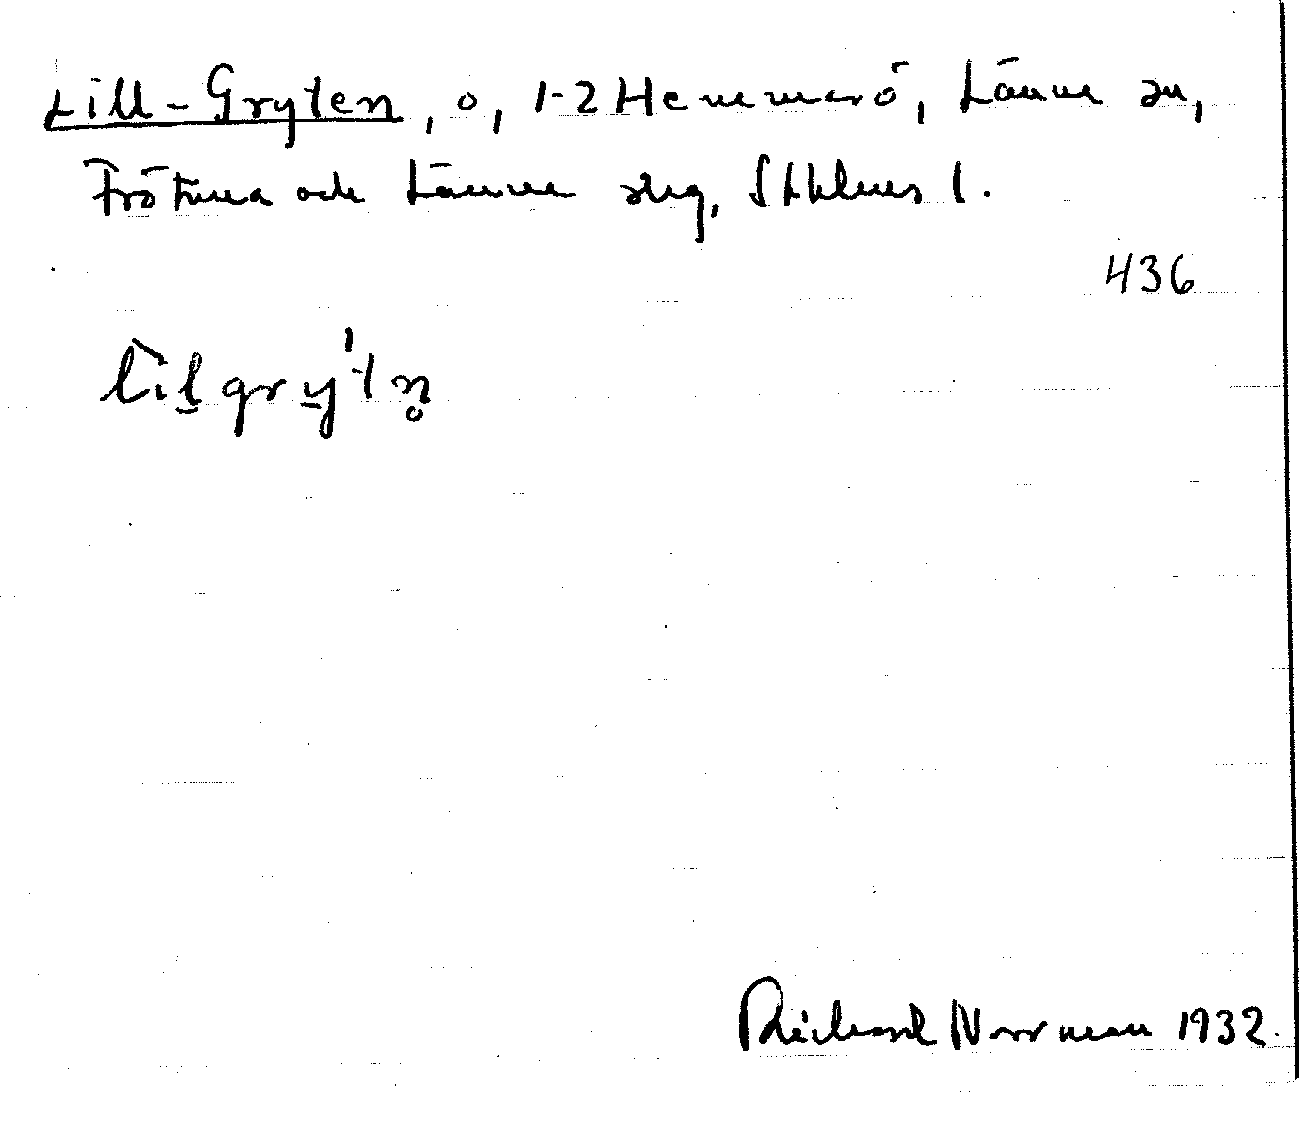 Lill-Gryten, ö, 1-2 Hemmarö, Länna sn,
Frötuna och Länna slg, Sthlms l.
436
lìlgrý'tn̥
Richard Norrman 1932.